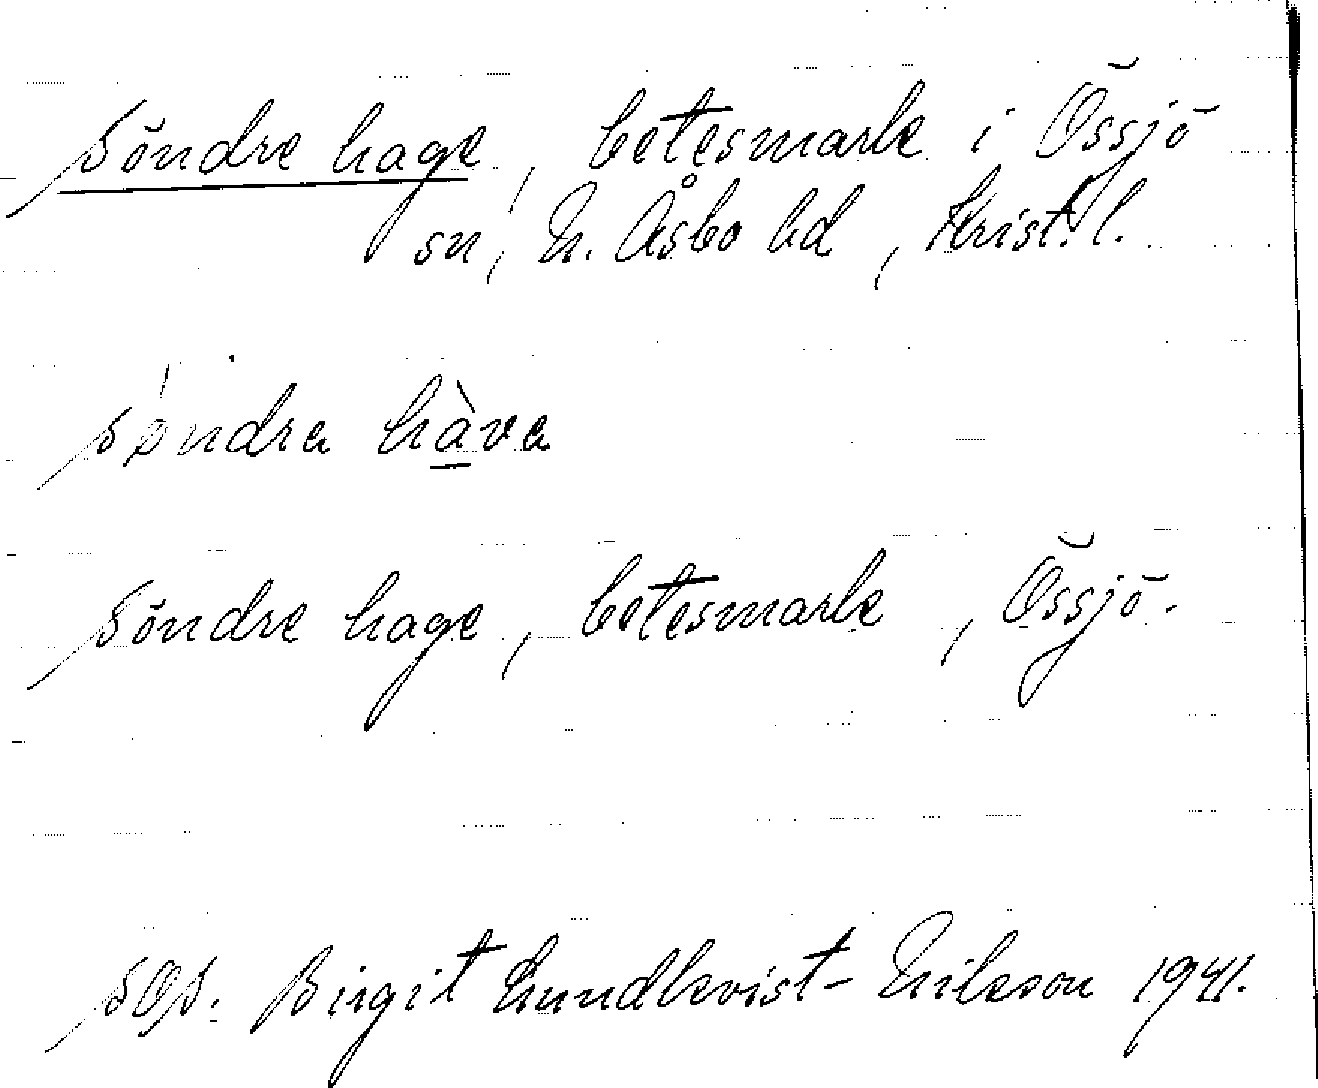 Söndre hage, betesmark i Össjö
sn, N. Åsbo hd, Krist. l.
søndra hàva
Söndre hage, betesmark, Össjö.
Birgit Lundkvist-Nilsson 1941.